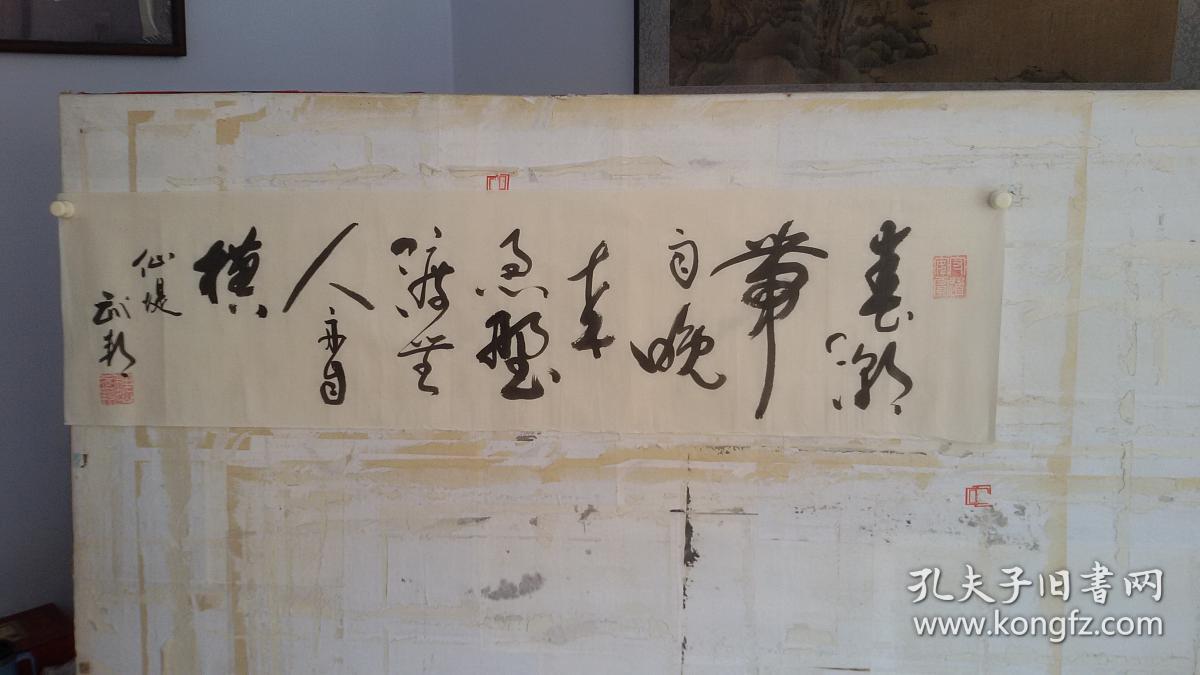 春潮
帶
雨晚
来
急野
渡無
人舟自
横
仙堤
武
孔夫子旧书网
www.kongfz.com